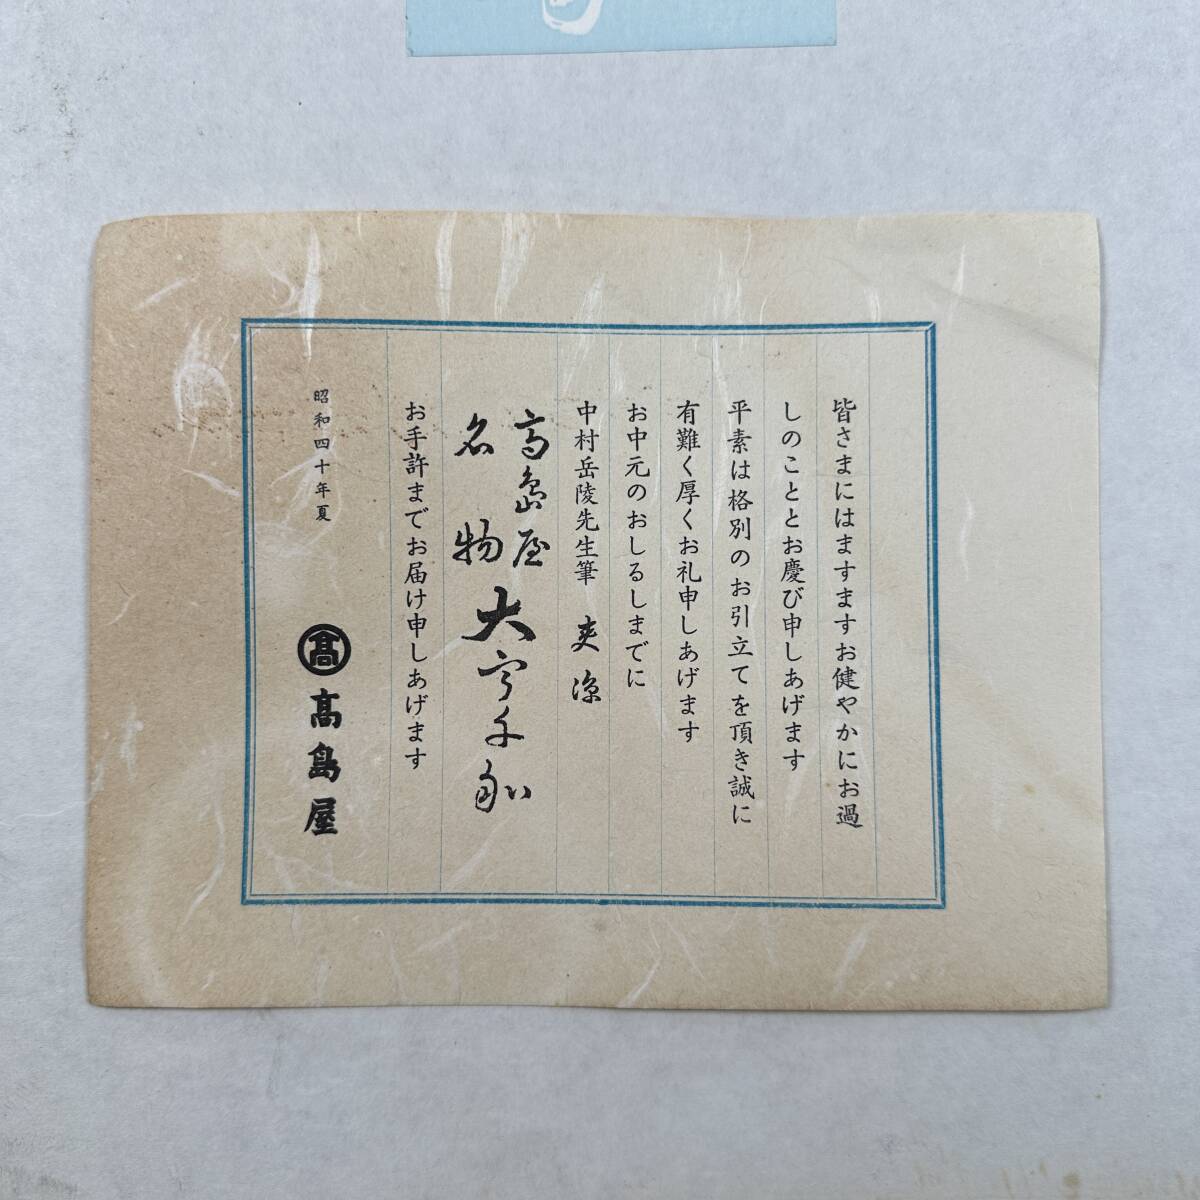 皆さまにはますますお健やかにお過
しのこととお慶び申しあげます
平素は格別のお引立てを頂き誠に
有難く厚くお礼申しあげます
お中元のおしるしまでに
中村岳陵先生筆 爽涼
高島屋
名物
大うちわ
お手許までお届け申しあげます
昭和四十年夏
髙 髙島屋